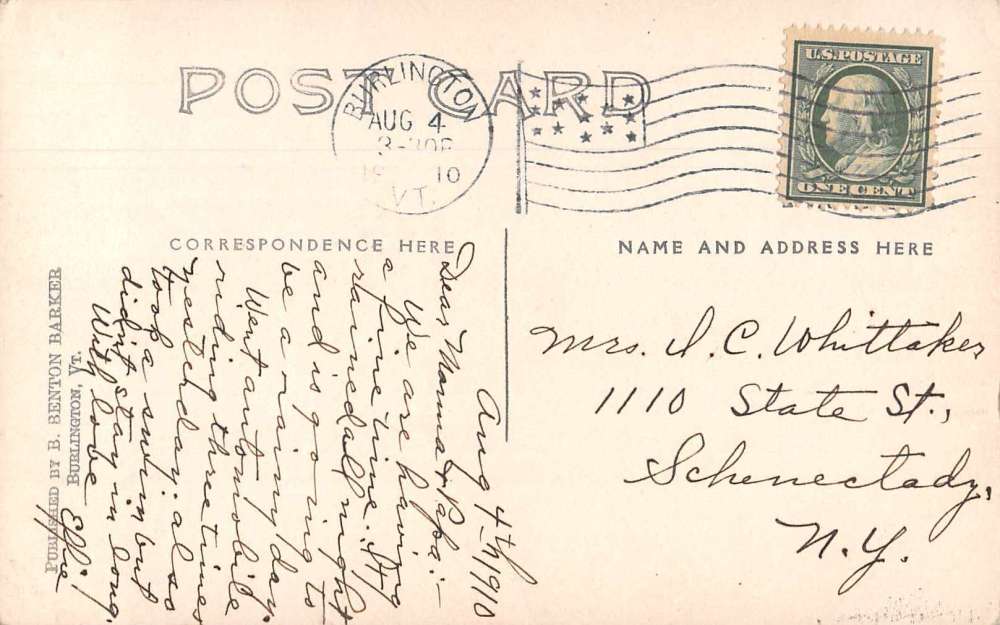 POST CARD
BURLINGTON
AUG 4
3-30P
19 10
VT.
U.S. POSTAGE
ONE CENT
CORRESPONDENCE HERE
NAME AND ADDRESS HERE
Aug 4th 1910
Dear Mamma & Papa:-
We are having
a fine time. It
rained all night
and is going to
be a rainy day.
Went automobile
riding three times
yesterday: also
took a swim but
didn't stay in long.
With love Effie.
Mrs. I. C. Whittaker
1110 State St.,
Schenectady,
N.Y.
PUBLISHED BY B. BENTON BARKER
BURLINGTON, VT.